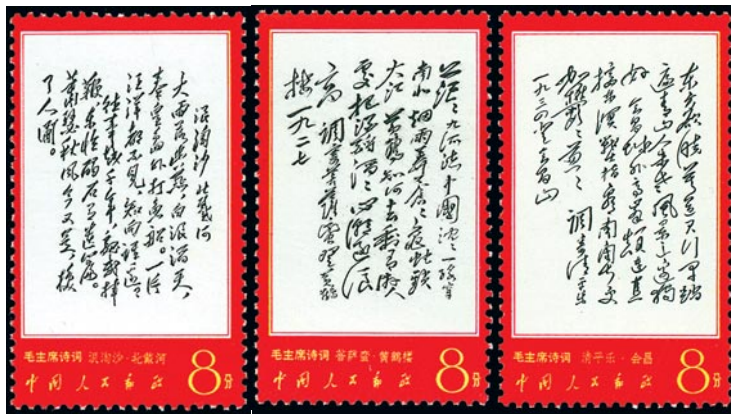 浪淘沙 北戴河
大雨落幽燕,白浪滔天,
秦皇岛外打鱼船。一片
汪洋都不见,知向谁边?
往事越千年,魏武挥
鞭,东临碣石有遗篇。
萧瑟秋风今又是,换
了人间。
毛主席诗词 浪淘沙·北戴河
中国人民邮政 8分
茫〻九派流中國沈〻一線穿
南北烟雨莽苍〻龟蛇鎖
大江 黄鹤知何去剩有游人
處把酒酹滔〻心潮逐浪
高 調寄菩萨蛮 登黄鹤
楼 一九二七
毛主席诗词 菩萨蛮·黄鹤楼
中国人民邮政 8分
东方欲晓莫道君行早踏
遍青山人未老风景这边独
好 会昌城外高峰颠连直
接东溟战士指看南粤更
加鬱〻葱〻 调寄清平乐
一九三四 登会昌山
毛主席诗词 清平乐·会昌
中国人民邮政 8分